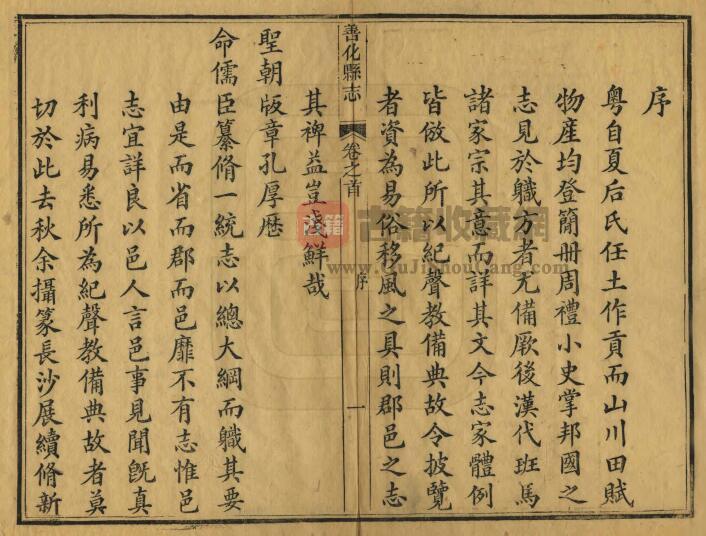 序
粤自夏后氏任土作貢而山川田賦
物產均登簡冊周禮小史掌邦國之
志見於職方者尤備厥後漢代班馬
諸家宗其意而詳其文今志家體例
皆倣此所以紀聲教備典故令披覽
者資為易俗移風之具則郡邑之志
善化縣志
卷之首
序
一
其裨益豈淺鮮哉
聖朝版章孔厚歷
命儒臣纂脩一統志以總大綱而職其要
由是而省而郡而邑靡不有志惟邑
志宜詳良以邑人言邑事見聞旣真
利病易悉所為紀聲教備典故者莫
切於此去秋余攝篆長沙展續脩新
古籍
古籍收藏網
www.GuJiShouCang.com